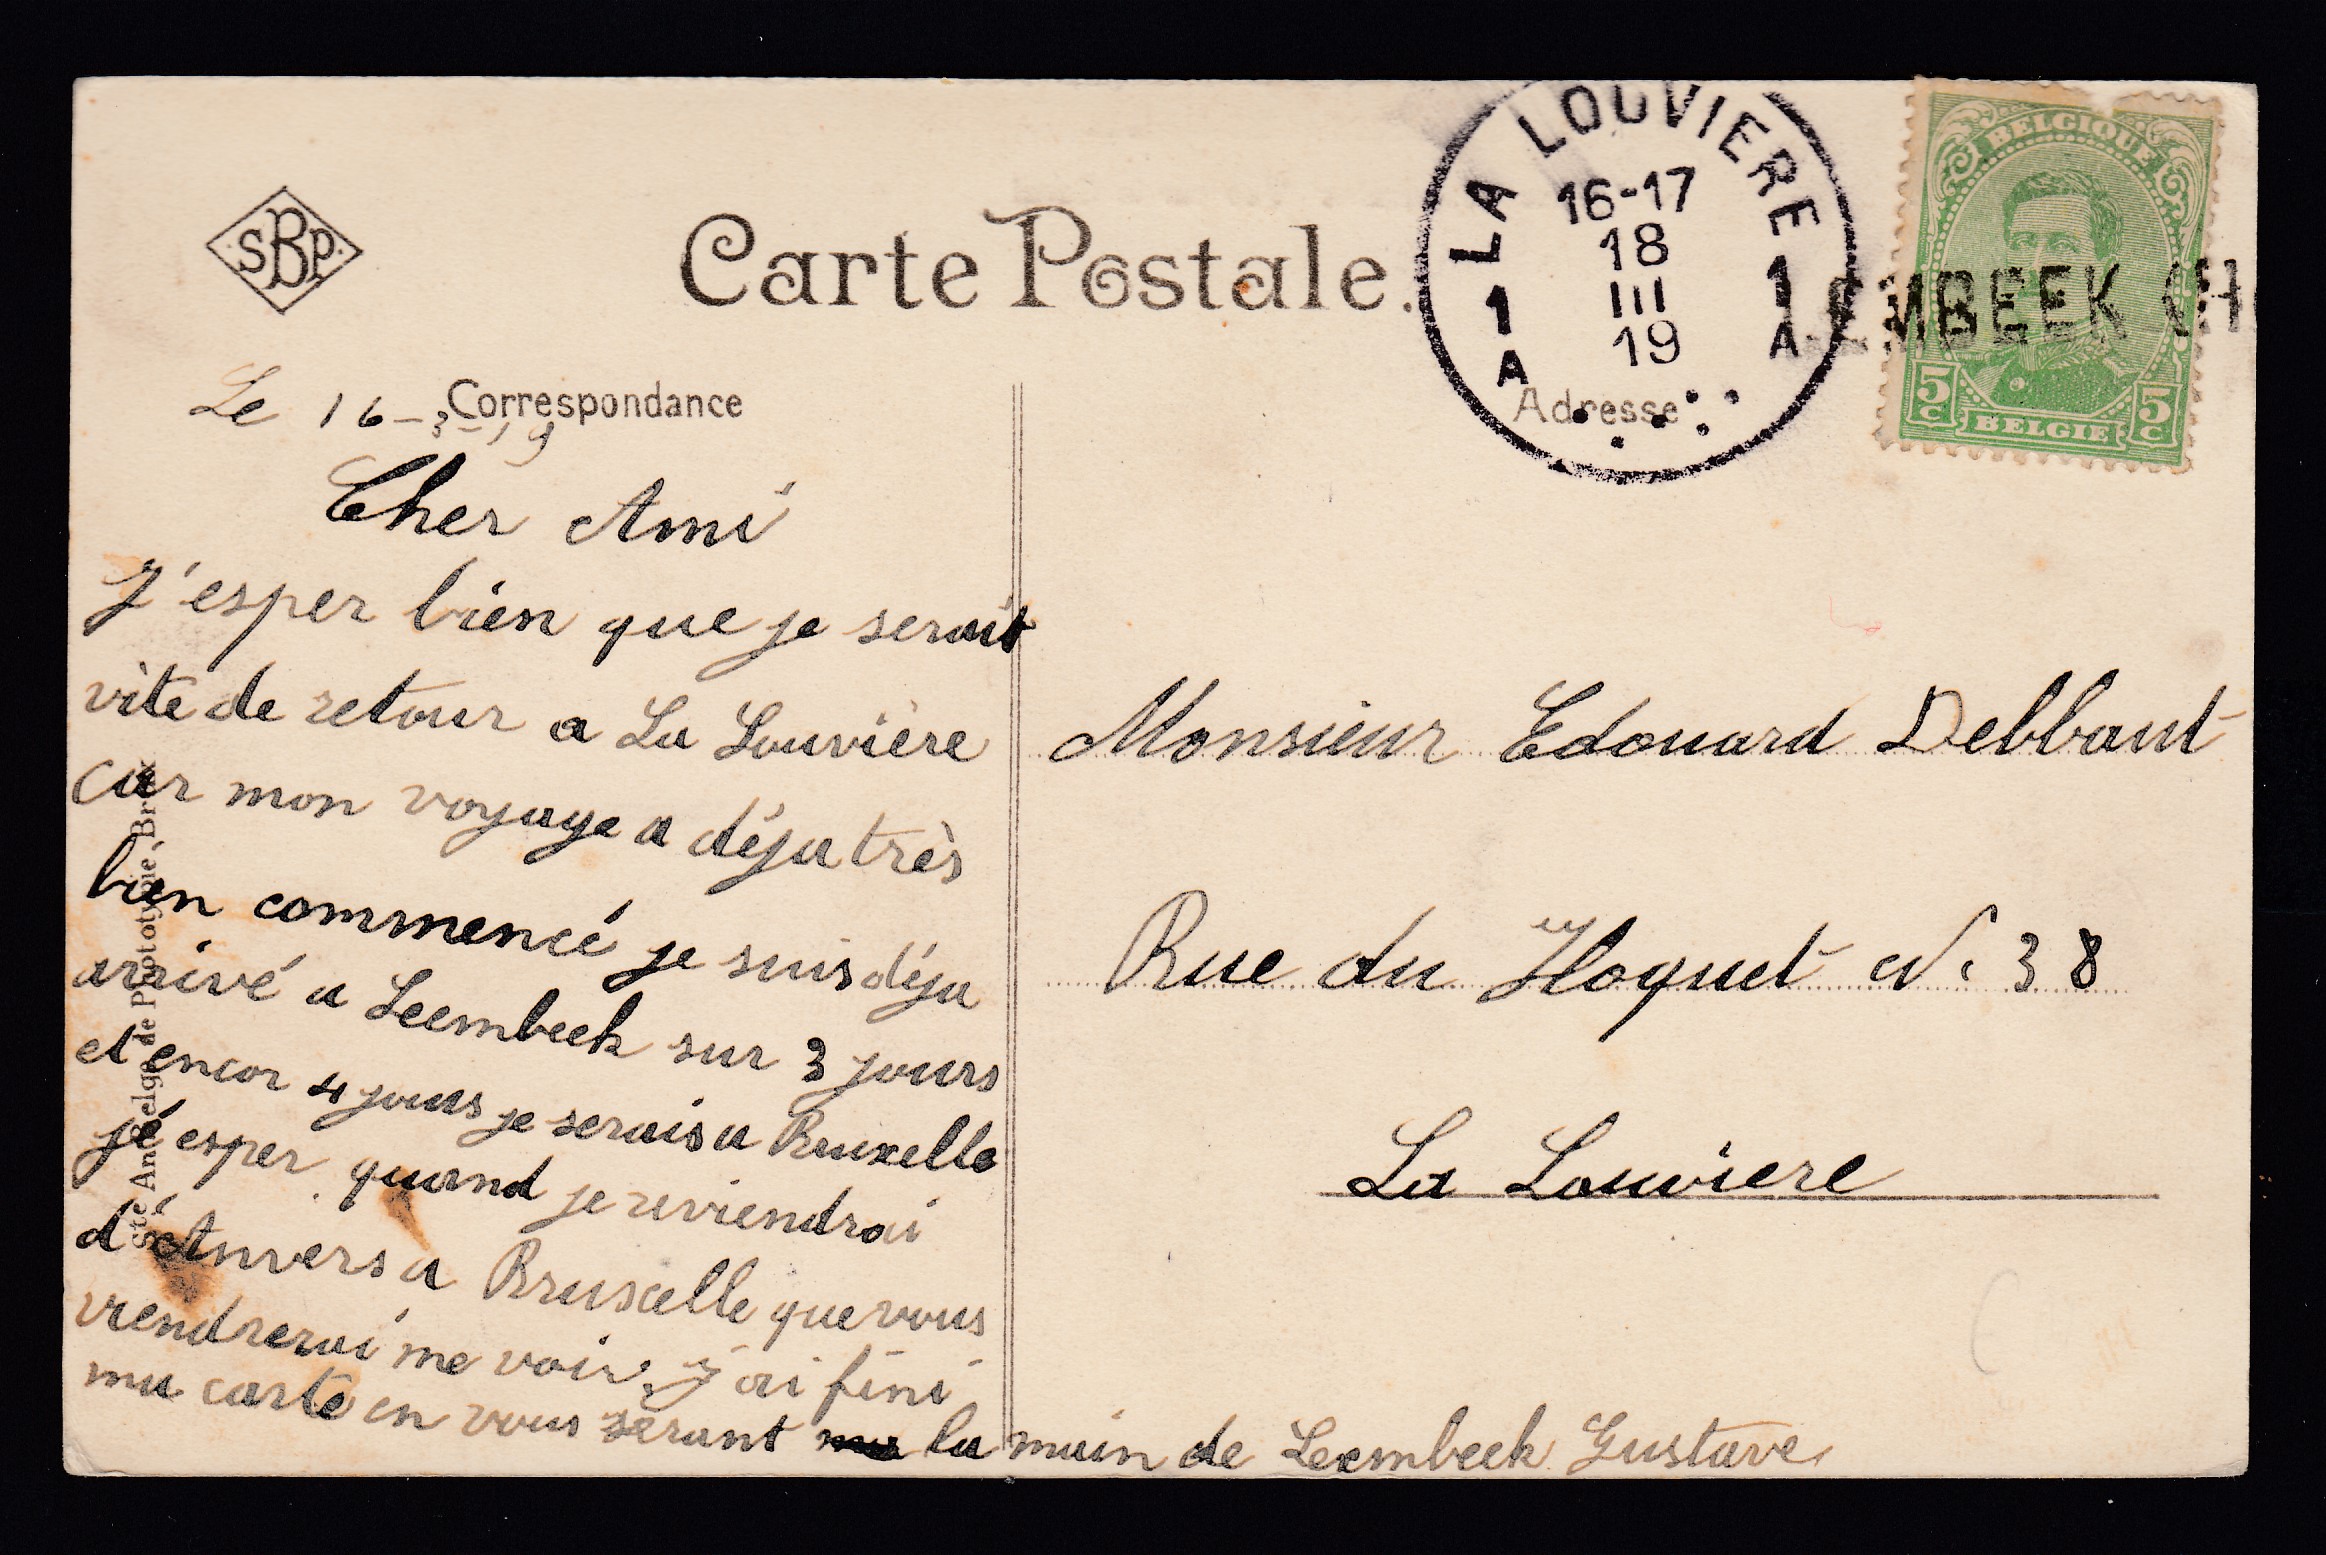 SBP
Carte Postale.
LA LOUVIERE
16-17
18
III
19
1 1
A A
BELGIQUE
LEMBEEK (H
5c 5c
BELGIE
Correspondance
Adresse
Le 16-3-19
Cher Ami
J'esper bien que je serait
vite de retour a La Louvière
car mon voyage a déja très
bien commencé je suis déja
arrivé a Leembeek sur 3 jours
et encor 4 jours je serais a Bruxelle
j'é esper quand je reviendrai
d'Anvers a Bruxelle que vous
viendrerai me voir. J'ai fini
ma carte en vous serant la main de Leembeek Gustave
Monsieur Edouard Debbaut
Rue du Hoquet N. 38
La Louviere
Sté An. Belge de Phototypie, Brux